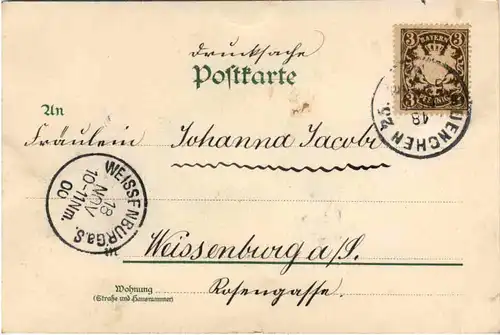 Drucksache
Postkarte
3 BAYERN 3
3 PFENNIG 3
MUENCHEN
18
An
Fräulein Johanna Jacobi
WEISSENBURG a.S.
18
NOV
10-11 Nm.
00
III
Weissenburg a/S.
Wohnung
(Straße und Hausnummer)
Rosengasse.